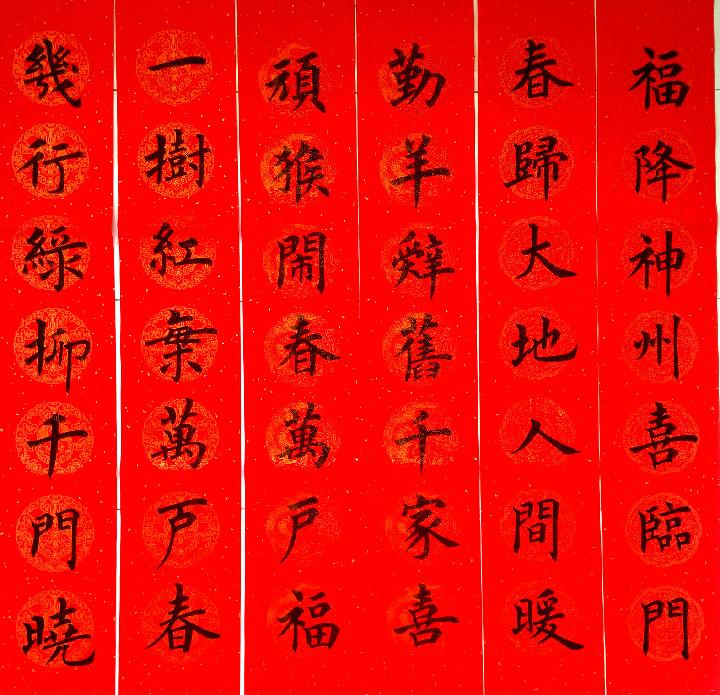 福降神州喜臨門
春歸大地人間暖
勤羊辭舊千家喜
頑猴閙春萬戶福
一樹紅梅萬戶春
幾行綠柳千門曉